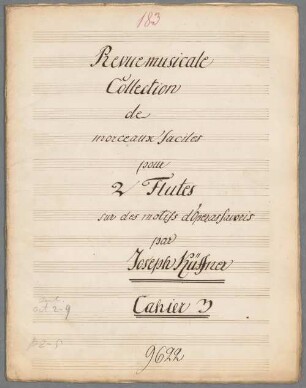 183
Revue musicale
Collection
de
morceaux faciles
pour
2 Flutes
sur des motifs d'Operas favoris
par
Joseph Küffner
Cahier 3
9622